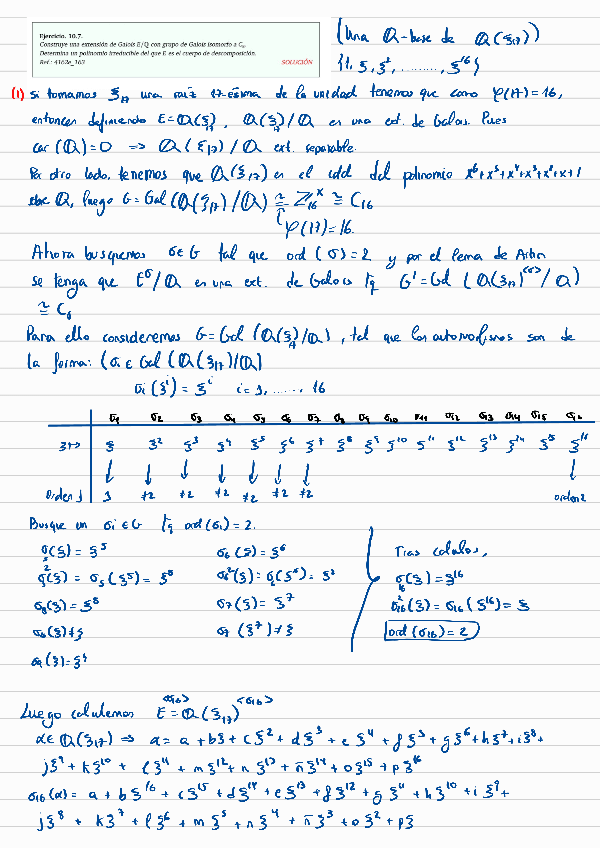 Ejercicio. 10.7.
Construye una extensión de Galois E/Q con grupo de Galois isomorfo a C₈.
Determina un polinomio irreducible del que E es el cuerpo de descomposición.
Ref.: 4162e_163 SOLUCIÓN
(Una ℚ-base de ℚ(ξ₁₇))
{1, ξ, ξ², ........, ξ¹⁶}
(1) Si tomamos ξ₁₇ una raíz 17-ésima de la unidad tenemos que como φ(17)=16,
entonces definiendo E=ℚ(ξ₁₇), ℚ(ξ₁₇)/ℚ es una ext. de Galois. Pues
car(ℚ)=0 ⟹ ℚ(ξ₁₇)/ℚ ext. separable.
Por otro lado, tenemos que ℚ(ξ₁₇) es el cdd del polinomio x⁶+x⁵+x⁴+x³+x²+x+1
sobre ℚ, luego G=Gal(ℚ(ξ₁₇)/ℚ) ≅ ℤ₁₆ˣ ≅ C₁₆
φ(17)=16.
Ahora busquemos σ∈G tal que ord(σ)=2 y por el lema de Artin
se tenga que E^σ/ℚ es una ext. de Galois tq G'=Gal(ℚ(ξ₁₇)^<σ>/ℚ)
≅ C₈
Para ello consideremos G=Gal(ℚ(ξ₁₇)/ℚ), tal que los automorfismos son de
la forma: (σᵢ ∈ Gal(ℚ(ξ₁₇)/ℚ)
σᵢ(ξⁱ)=ξⁱ i=1, ......, 16
σ₁ σ₂ σ₃ σ₄ σ₅ σ₆ σ₇ σ₈ σ₉ σ₁₀ σ₁₁ σ₁₂ σ₁₃ σ₁₄ σ₁₅ σ₁₆
ξ↦ ξ ξ² ξ³ ξ⁴ ξ⁵ ξ⁶ ξ⁷ ξ⁸ ξ⁹ ξ¹⁰ ξ¹¹ ξ¹² ξ¹³ ξ¹⁴ ξ¹⁵ ξ¹⁶
↓ ↓ ↓ ↓ ↓ ↓ ↓ ↓
Orden 1 ≠2 ≠2 ≠2 ≠2 ≠2 ≠2 orden 2
Busque un σᵢ∈G tq ord(σᵢ)=2.
σ₅(ξ)=ξ⁵ σ₆(ξ)=ξ⁶ Tras calculos,
σ₅²(ξ)=σ₅(ξ⁵)=ξ⁸ σ₆²(ξ)=σ₆(ξ⁶)=ξ² σ₁₆(ξ)=ξ¹⁶
σ₈(ξ)=ξ⁸ σ₇(ξ)=ξ⁷ σ₁₆²(ξ)=σ₁₆(ξ¹⁶)=ξ
σ₈(ξ)≠ξ σ₇(ξ⁷)≠ξ ord(σ₁₆)=2
σ₉(ξ)=ξ⁴
Luego calculemos E^<σ₁₆>=ℚ(ξ₁₇)^<σ₁₆>
α∈ℚ(ξ₁₇) ⟹ α=a+bξ+cξ²+dξ³+eξ⁴+fξ⁵+gξ⁶+hξ⁷+iξ⁸+
jξ⁹+kξ¹⁰+lξ¹¹+mξ¹²+nξ¹³+ñξ¹⁴+oξ¹⁵+pξ¹⁶
σ₁₆(α)=a+bξ¹⁶+cξ¹⁵+dξ¹⁴+eξ¹³+fξ¹²+gξ¹¹+hξ¹⁰+iξ⁹+
jξ⁸+kξ⁷+lξ⁶+mξ⁵+nξ⁴+ñξ³+oξ²+pξ